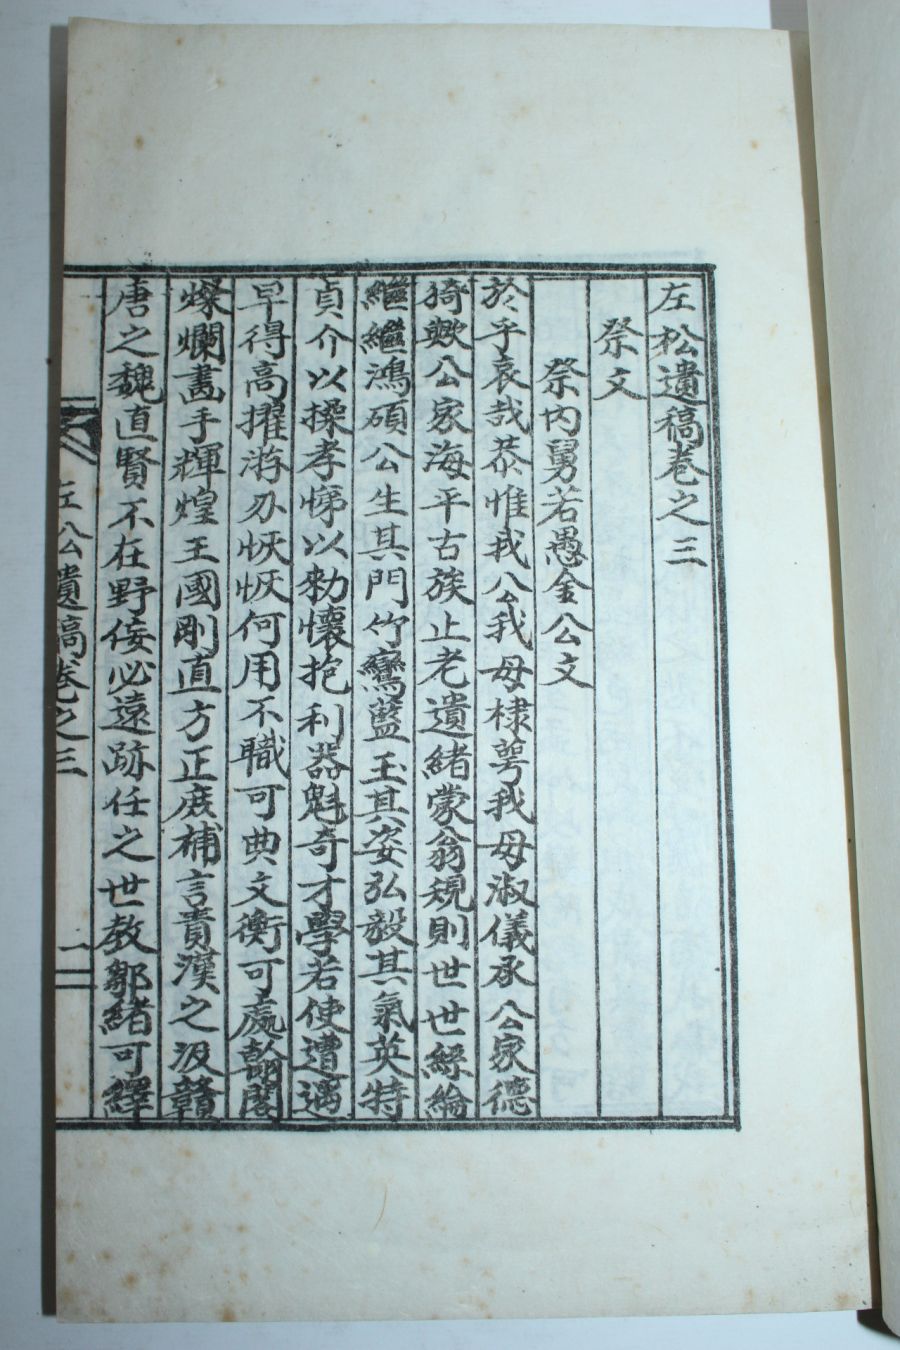 左松遺稿卷之三
祭文
祭內舅若愚金公文
於乎哀哉恭惟我公我母棣萼我母淑儀承公家德
猗歟公家海平古族止老遺緒蒙翁規則世世經綸
繼繼鴻碩公生其門竹鸞藍玉其姿弘毅其氣英特
貞介以操孝悌以勑懷抱利器魁奇才學若使遭遇
早得高擢游刃恢恢何用不職可典文衡可處翰閣
燦爛畵手輝煌王國剛直方正庶補言責漢之汲黯
唐之魏直賢不在野侫必遠跡任之世教鄒緖可繹
左公遺稿卷之三
一